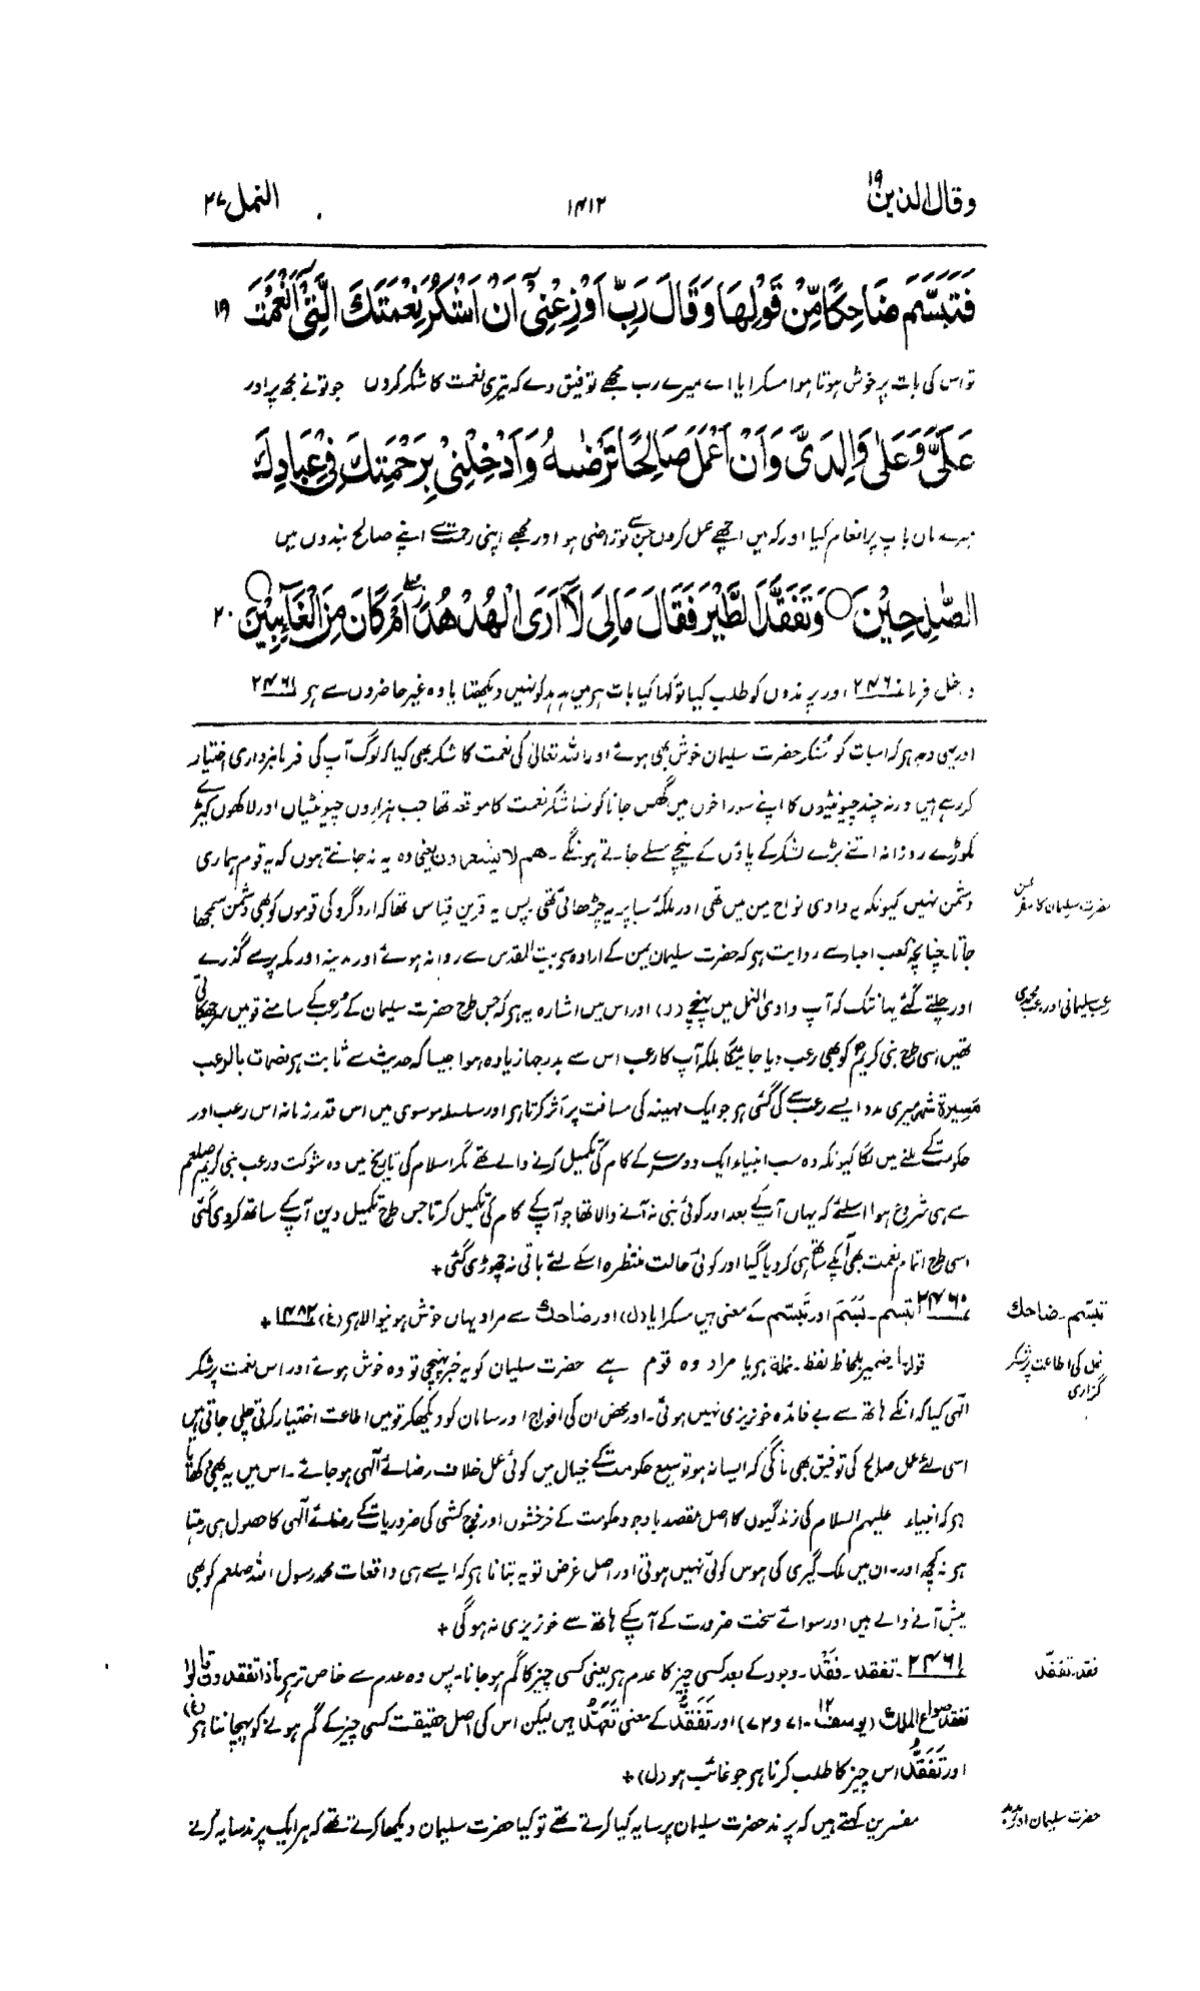 وقال الذین ۱۹
۱۴۱۲
النمل ۲۷
فَتَبَسَّمَ ضَاحِكًا مِّنْ قَوْلِهَا وَقَالَ رَبِّ اَوْزِعْنِیْۤ اَنْ اَشْكُرَ نِعْمَتَكَ الَّتِیْۤ اَنْعَمْتَ ۱۹
تو اس کی بات پر خوش ہوتا ہوا مسکرایا اے میرے رب مجھے توفیق دے کہ تیری نعمت کا شکر کروں جو تونے مجھ پر اور
عَلَیَّ وَعَلٰی وَالِدَیَّ وَاَنْ اَعْمَلَ صَالِحًا تَرْضٰىهُ وَاَدْخِلْنِیْ بِرَحْمَتِكَ فِیْ عِبَادِكَ
میرے ماں باپ پر انعام کیا اور کہ میں اچھے عمل کروں جن سے تو راضی ہو اور مجھے اپنی رحمت سے اپنے صالح بندوں میں
الصّٰلِحِیْنَ ○ وَتَفَقَّدَ الطَّیْرَ فَقَالَ مَالِیَ لَاۤ اَرَی الْهُدْهُدَ ۖ اَمْ كَانَ مِنَ الْغَآىِٕبِیْنَ ○ ۲۰
داخل فرما ۲۴۶۰ اور پرندوں کو طلب کیا تو کہا کیا بات ہے میں ہدہد کو نہیں دیکھتا یا وہ غیر حاضروں سے ہے ۲۴۶۱
اور یہی وجہ ہے کہ اس بات کو سنکر حضرت سلیمان خوش بھی ہوئے اور اللہ تعالیٰ کی نعمت کا شکر بھی کیا کہ لوگ آپ کی فرمانبرداری اختیار
کر رہے ہیں ورنہ چند چیونٹیوں کا اپنے سوراخوں میں گھس جانا کونسا شکر نعمت کا موقعہ تھا جب ہزاروں چیونٹیاں اور لاکھوں کیڑے
مکوڑے روزانہ اتنے بڑے لشکر کے پاؤں کے نیچے مسلے جاتے ہونگے ۔ ھم لا یشعرون یعنی وہ یہ نہ جانتے ہوں کہ یہ قوم ہماری
دشمن نہیں کیونکہ یہ وادی نواح یمن میں تھی اور ملکۂ سبا پر یہ چڑھائی تھی پس یہ قرین قیاس تھا کہ اردگرد کی قوموں کو بھی دشمن سمجھا
حضرت سلیمان کا سفر یمن
جاتا چنانچہ کعب احبار سے روایت ہے کہ حضرت سلیمان یمن کے ارادہ سے بیت المقدس سے روانہ ہوئے اور مدینہ اور مکہ پر سے گذرے
اور چلتے گئے یہانتک کہ آپ وادی النمل میں پہنچے (د) اور اس میں اشارہ یہ ہے کہ جس طرح حضرت سلیمان کے رعب کے سامنے قومیں سر جھکاتی
رعب سلیمانی اور رعب محمدی
تھیں اسی طرح نبی کریمؐ کو بھی رعب دیا جائیگا بلکہ آپ کا رعب اس سے بدرجہا زیادہ ہوا جیسا کہ حدیث سے ثابت ہے نصرت بالرعب
مسیرۃ شہر میری مدد ایسے رعب سے کی گئی ہے جو ایک مہینہ کی مسافت پر اثر کرتا ہے اور سلسلہ موسوی میں اس قدر زمانہ اس رعب اور
حکومت کے ملنے میں لگا کیونکہ وہ سب انبیاء ایک دوسرے کے کام کی تکمیل کرنے والے تھے مگر اسلام کی تاریخ میں وہ شوکت و رعب نبی کریم صلعم
سے ہی شروع ہوا اسلئے کہ یہاں آپ کے بعد اور کوئی نبی نہ آنے والا تھا جو آپ کے کام کی تکمیل کرتا جس طرح تکمیل دین آپ کے ساتھ کر دی گئی
اسی طرح اتمام نعمت بھی آپکے ساتھ ہی کر دیا گیا اور کوئی حالت منتظرہ اسکے لئے باقی نہ چھوڑی گئی +
۲۴۶۰ تبسم ۔ بَسَمَ اور تَبَسَّم کے معنی ہیں مسکرایا (ل) اور ضاحک سے مراد یہاں خوش ہونیوالا ہے (غ) ۱۴۸۲ +
تبسّم ۔ ضاحك
قولہا ضمیر بلحاظ لفظ نملۃ ہے یا مراد وہ قوم ہے حضرت سلیمان کو یہ خبر پہنچی تو وہ خوش ہوئے اور اس نعمت پر شکر
نمل کی اطاعت پر شکر گزاری
الٰہی کیا کہ انکے ہاتھ سے بے فائدہ خونریزی نہیں ہوئی ۔ اور محض ان کی افواج اور سامان کو دیکھکر قومیں اطاعت اختیار کرتی چلی جاتی ہیں
اسی لئے عمل صالح کی توفیق بھی مانگی کہ ایسا نہ ہو توسیع حکومت کے خیال میں کوئی عمل خلاف رضائے الٰہی ہو جائے ۔ اس میں یہ بھی دکھانا
ہے کہ انبیاء علیہم السلام کی زندگیوں کا اصل مقصد باوجود حکومت کے خرخشوں اور فوج کشی کی ضروریات کے رضائے الٰہی کا حصول ہی رہتا
ہے نہ کچھ اور ۔ ان میں ملک گیری کی ہوس کوئی نہیں ہوتی اور اصل غرض تو یہ بتانا ہے کہ ایسے ہی واقعات محمد رسول اللہ صلعم کو بھی
پیش آنے والے ہیں اور سوائے سخت ضرورت کے آپ کے ہاتھ سے خونریزی نہ ہو گی +
۲۴۶۱ ۔ تفقد ۔ فقد ۔ وجود کے بعد کسی چیز کا عدم ہے یعنی کسی چیز کا گم ہو جانا ۔ پس وہ عدم سے خاص تر ہے ماذا تفقدون قالوا
فقد ۔ تفقّد
نفقد صواع الملك (یوسف ۱۲ ۔ ۷۱ و ۷۲) اور تَفَقُّد کے معنی تَعَهُّد ہیں لیکن اس کی اصل حقیقت کسی چیز کے گم ہونے کو پہچاننا ہے (غ)
اور تَفَقُّد اس چیز کا طلب کرنا ہے جو غائب ہو (ل) +
مفسرین کہتے ہیں کہ پرند حضرت سلیمان پر سایہ کیا کرتے تھے تو کیا حضرت سلیمان دیکھا کرتے تھے کہ ہر ایک پرند سایہ کرنے
حضرت سلیمان اور ہدہد